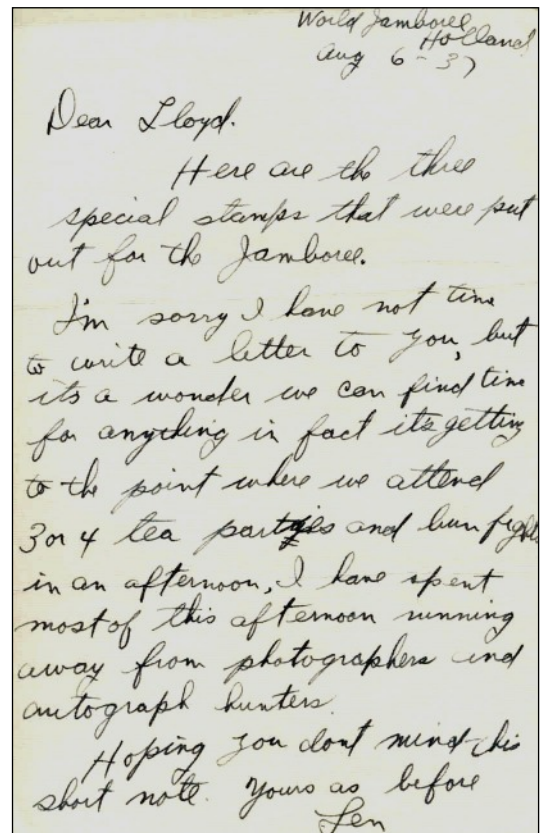 World Jamboree
Holland
Aug 6 - 37
Dear Lloyd.
Here are the three
special stamps that were put
out for the Jamboree.
I'm sorry I have not time
to write a letter to you, but
its a wonder we can find time
for anything in fact its getting
to the point where we attend
3 or 4 tea parties and bun fights
in an afternoon, I have spent
most of this afternoon running
away from photographers and
autograph hunters.
Hoping you dont mind this
short note. Yours as before
Len